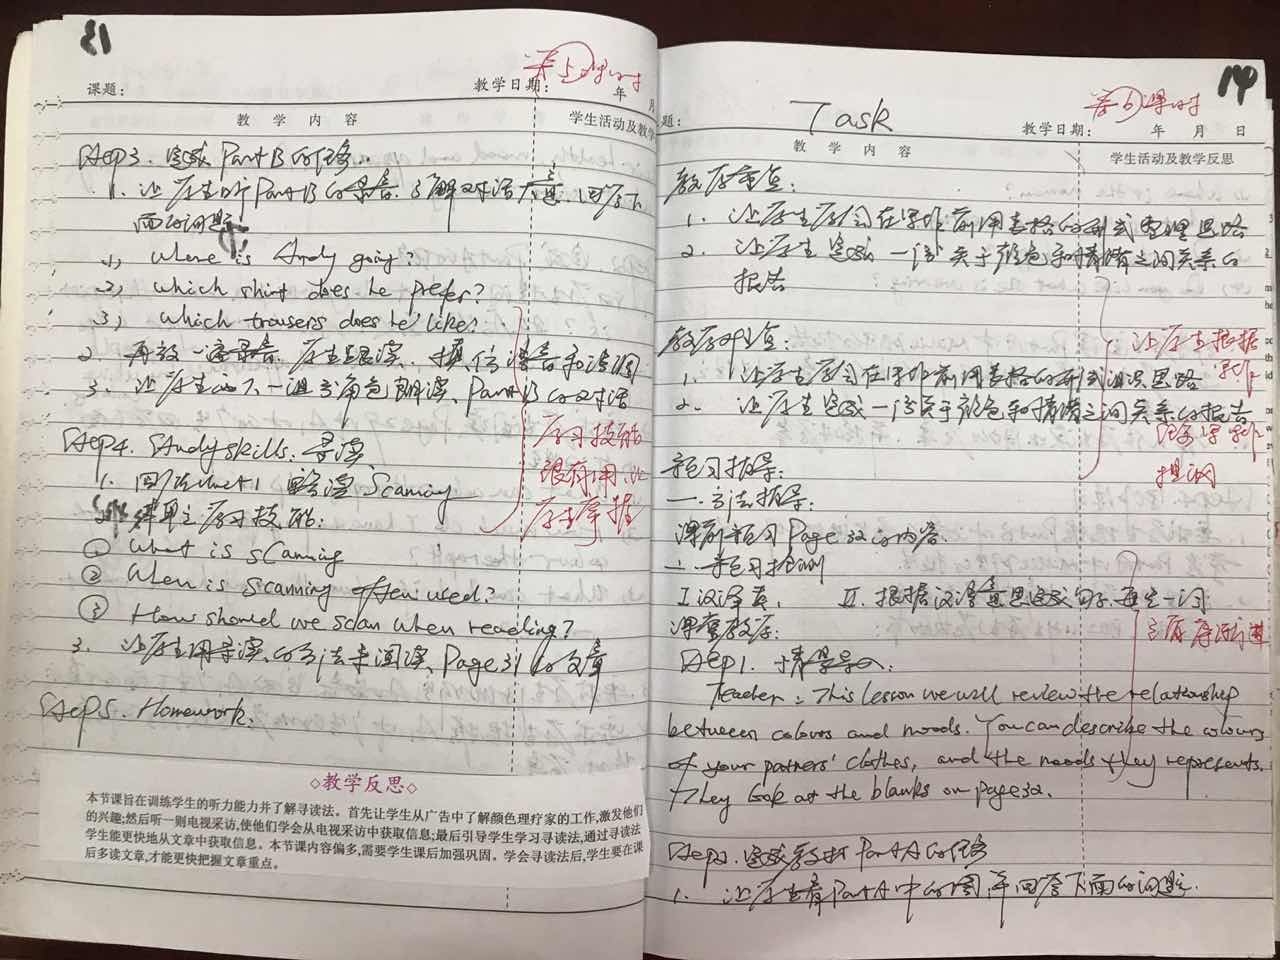 13
第5课时
课题:
教学日期: 年 月
教 学 内 容
学生活动及教学
Step3. 完成 Part B 的任务.
1. 让学生听 Part B 的录音, 了解对话大意, 回答下
面的问题:
1) Where is Andy going?
2) Which shirt does he prefer?
3) Which trousers does he like?
2. 再放一遍录音, 学生跟读, 模仿语音和语调
3. 让学生两人一组分角色朗读 Part B 的对话
Step4. Study skills: 寻读
1. 回顾 Unit 1 略读 Scanning
学习技能:
① What is scanning
② When is scanning often used?
③ How should we scan when reading?
3. 让学生用寻读的方法来阅读 Page 31 的文章
Step5. Homework.
学习技能
很有用, 让
学生掌握
◇教学反思◇
本节课旨在训练学生的听力能力并了解寻读法。首先让学生从广告中了解颜色理疗家的工作,激发他们
的兴趣;然后听一则电视采访,使他们学会从电视采访中获取信息;最后引导学生学习寻读法,通过寻读法
学生能更快地从文章中获取信息。本节课内容偏多,需要学生课后加强巩固。学会寻读法后,学生要在课
后多读文章,才能更快把握文章重点。
14
第6课时
题:
Task
教学日期: 年 月 日
教 学 内 容
学生活动及教学反思
教学重点:
1. 让学生学会在写作前用表格的形式整理思路
2. 让学生完成一份关于颜色和情绪之间关系的
报告
教学难点:
1. 让学生学会在写作前用表格的形式组织思路
2. 让学生完成一份关于颜色和情绪之间关系的报告
让学生根据
写作
提纲
预习指导:
一. 方法指导:
课前预习 Page 32 的内容.
二. 预习检测
I. 汉译英, II. 根据汉语意思完成句子, 每空一词
课堂教学:
Step1. 情景导入:
Teacher: This lesson we will review the relationship
between colours and moods. You can describe the colours
of your partners' clothes, and the moods they represents.
They look at the blanks on page 32.
Step2. 完成教材 Part A 的任务
1. 让学生看 Part A 中的图, 并回答下面的问题: